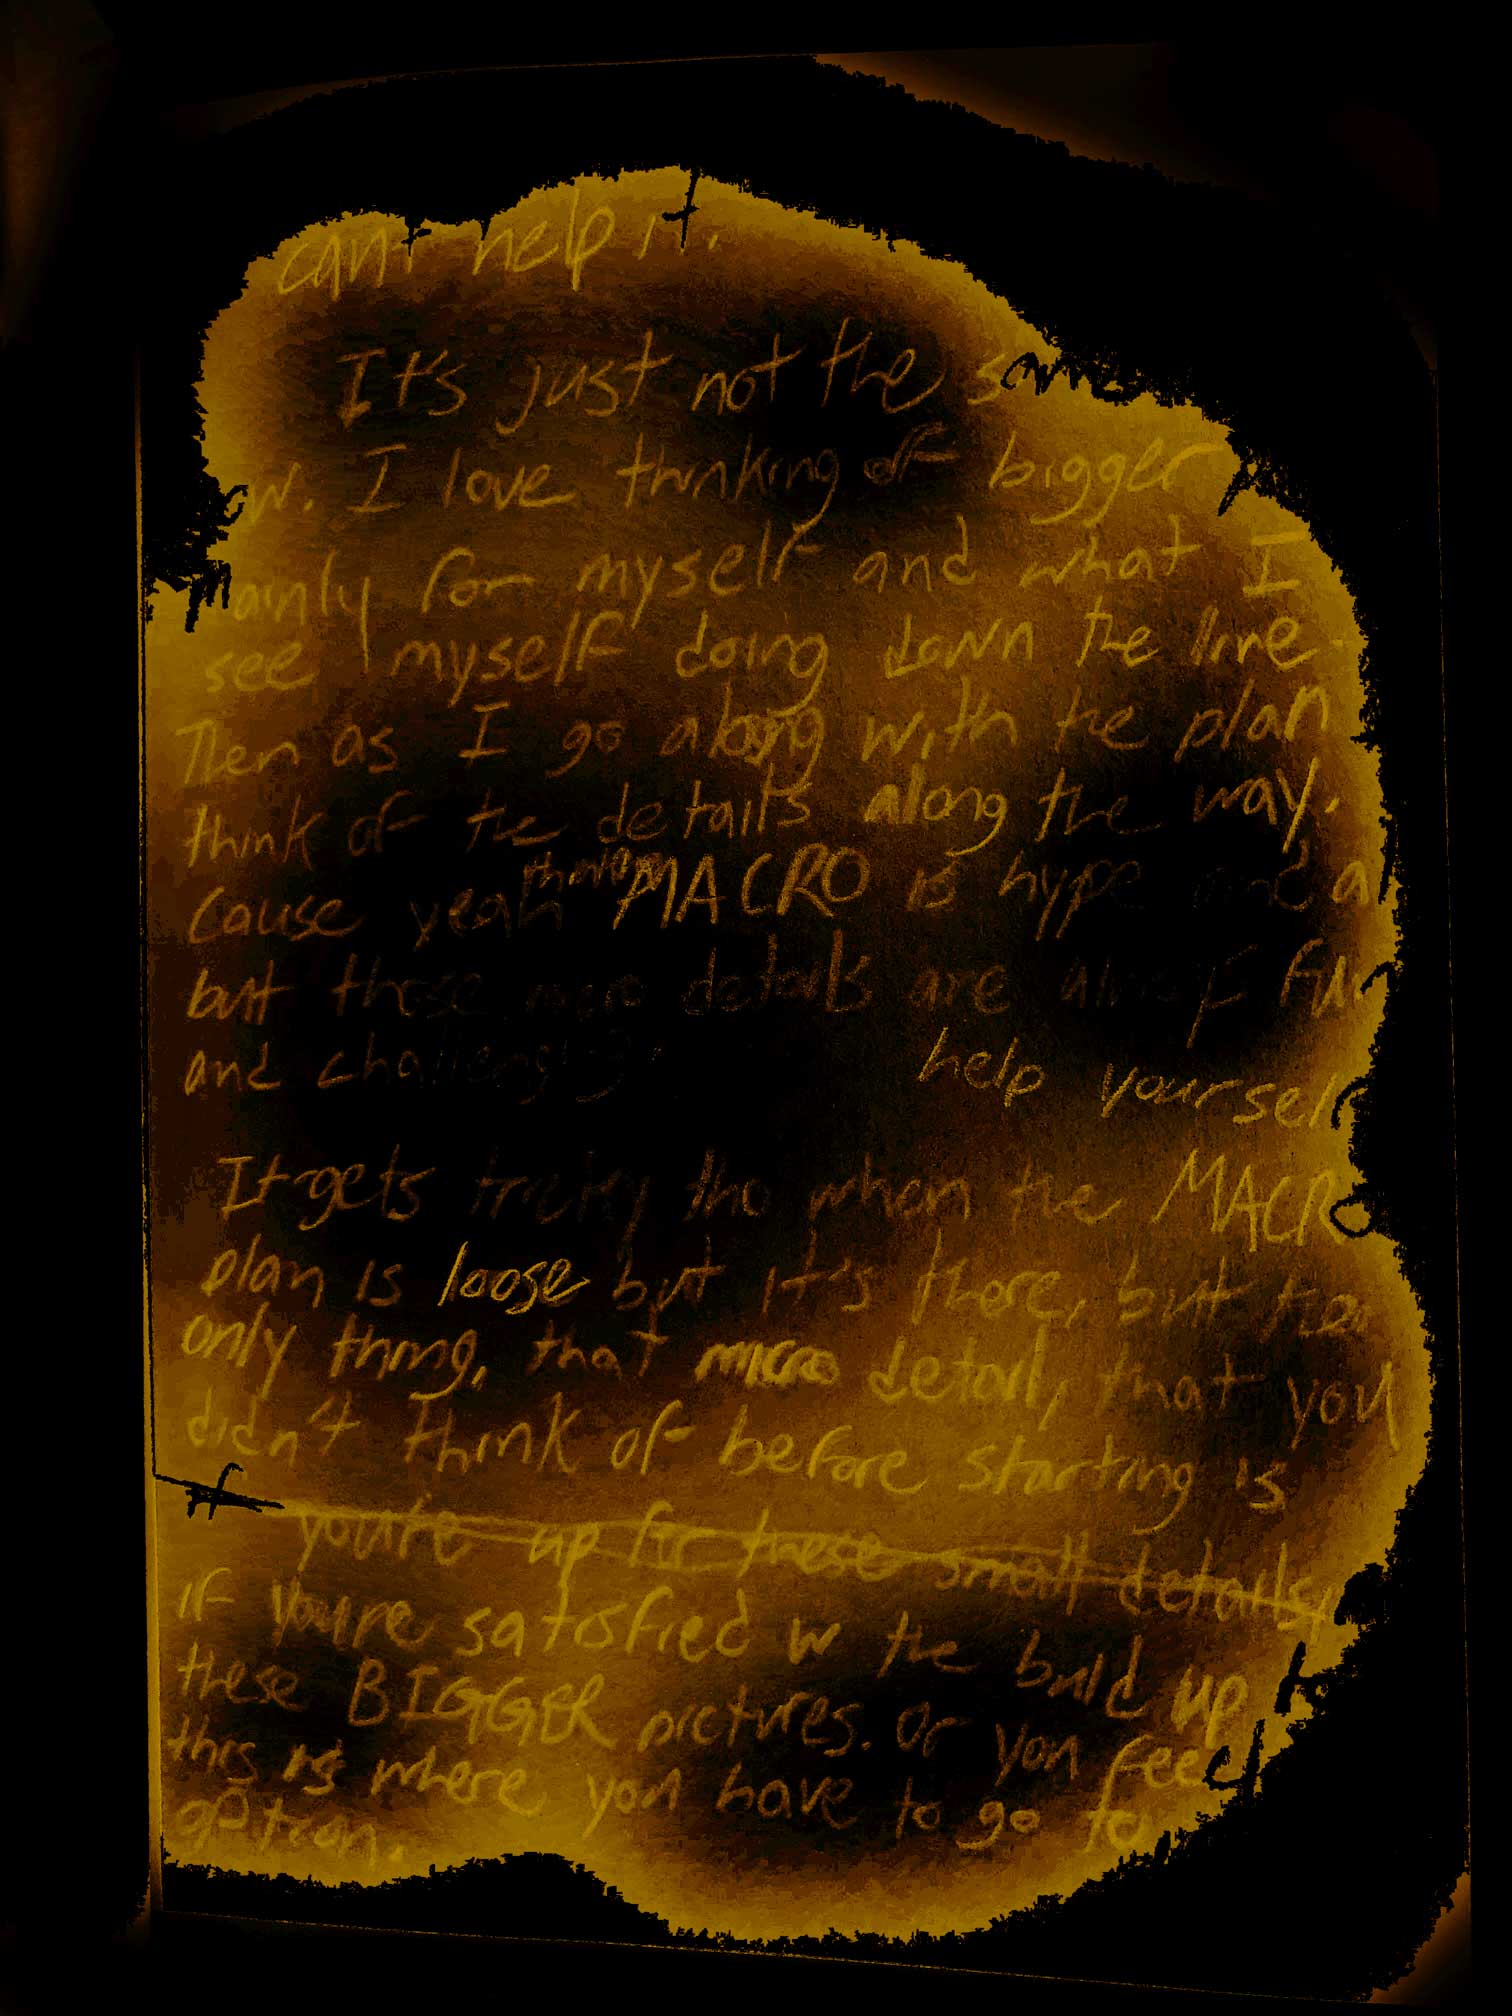 can't help it.
It's just not the same
w. I love thinking of bigger
mainly for myself and what I
see myself doing down the line.
Then as I go along with the plan
think of the details along the way.
Cause yeah thinking MACRO is hype and
but those micro details are fun
and challenging. help yourself
It gets tricky tho when the MACRO
plan is loose but it's there, but the
only thing, that micro detail, that you
didn't think of before starting is
if you're up for these small details,
if you're satisfied w the build up
these BIGGER pictures. Or you feel
this is where you have to go to
option.